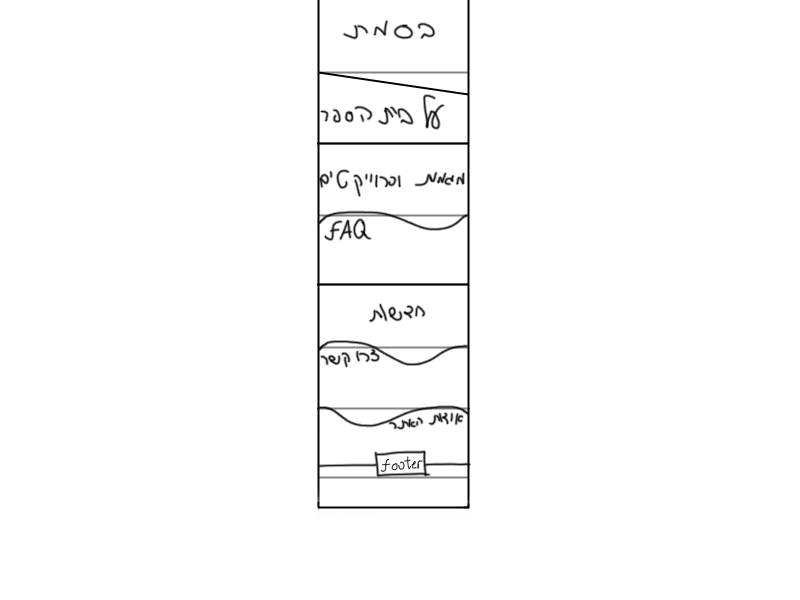 בסמת
על בית הספר
מגמות ופרוייקטים
FAQ
חדשות
צרו קשר
אודות האתר
footer